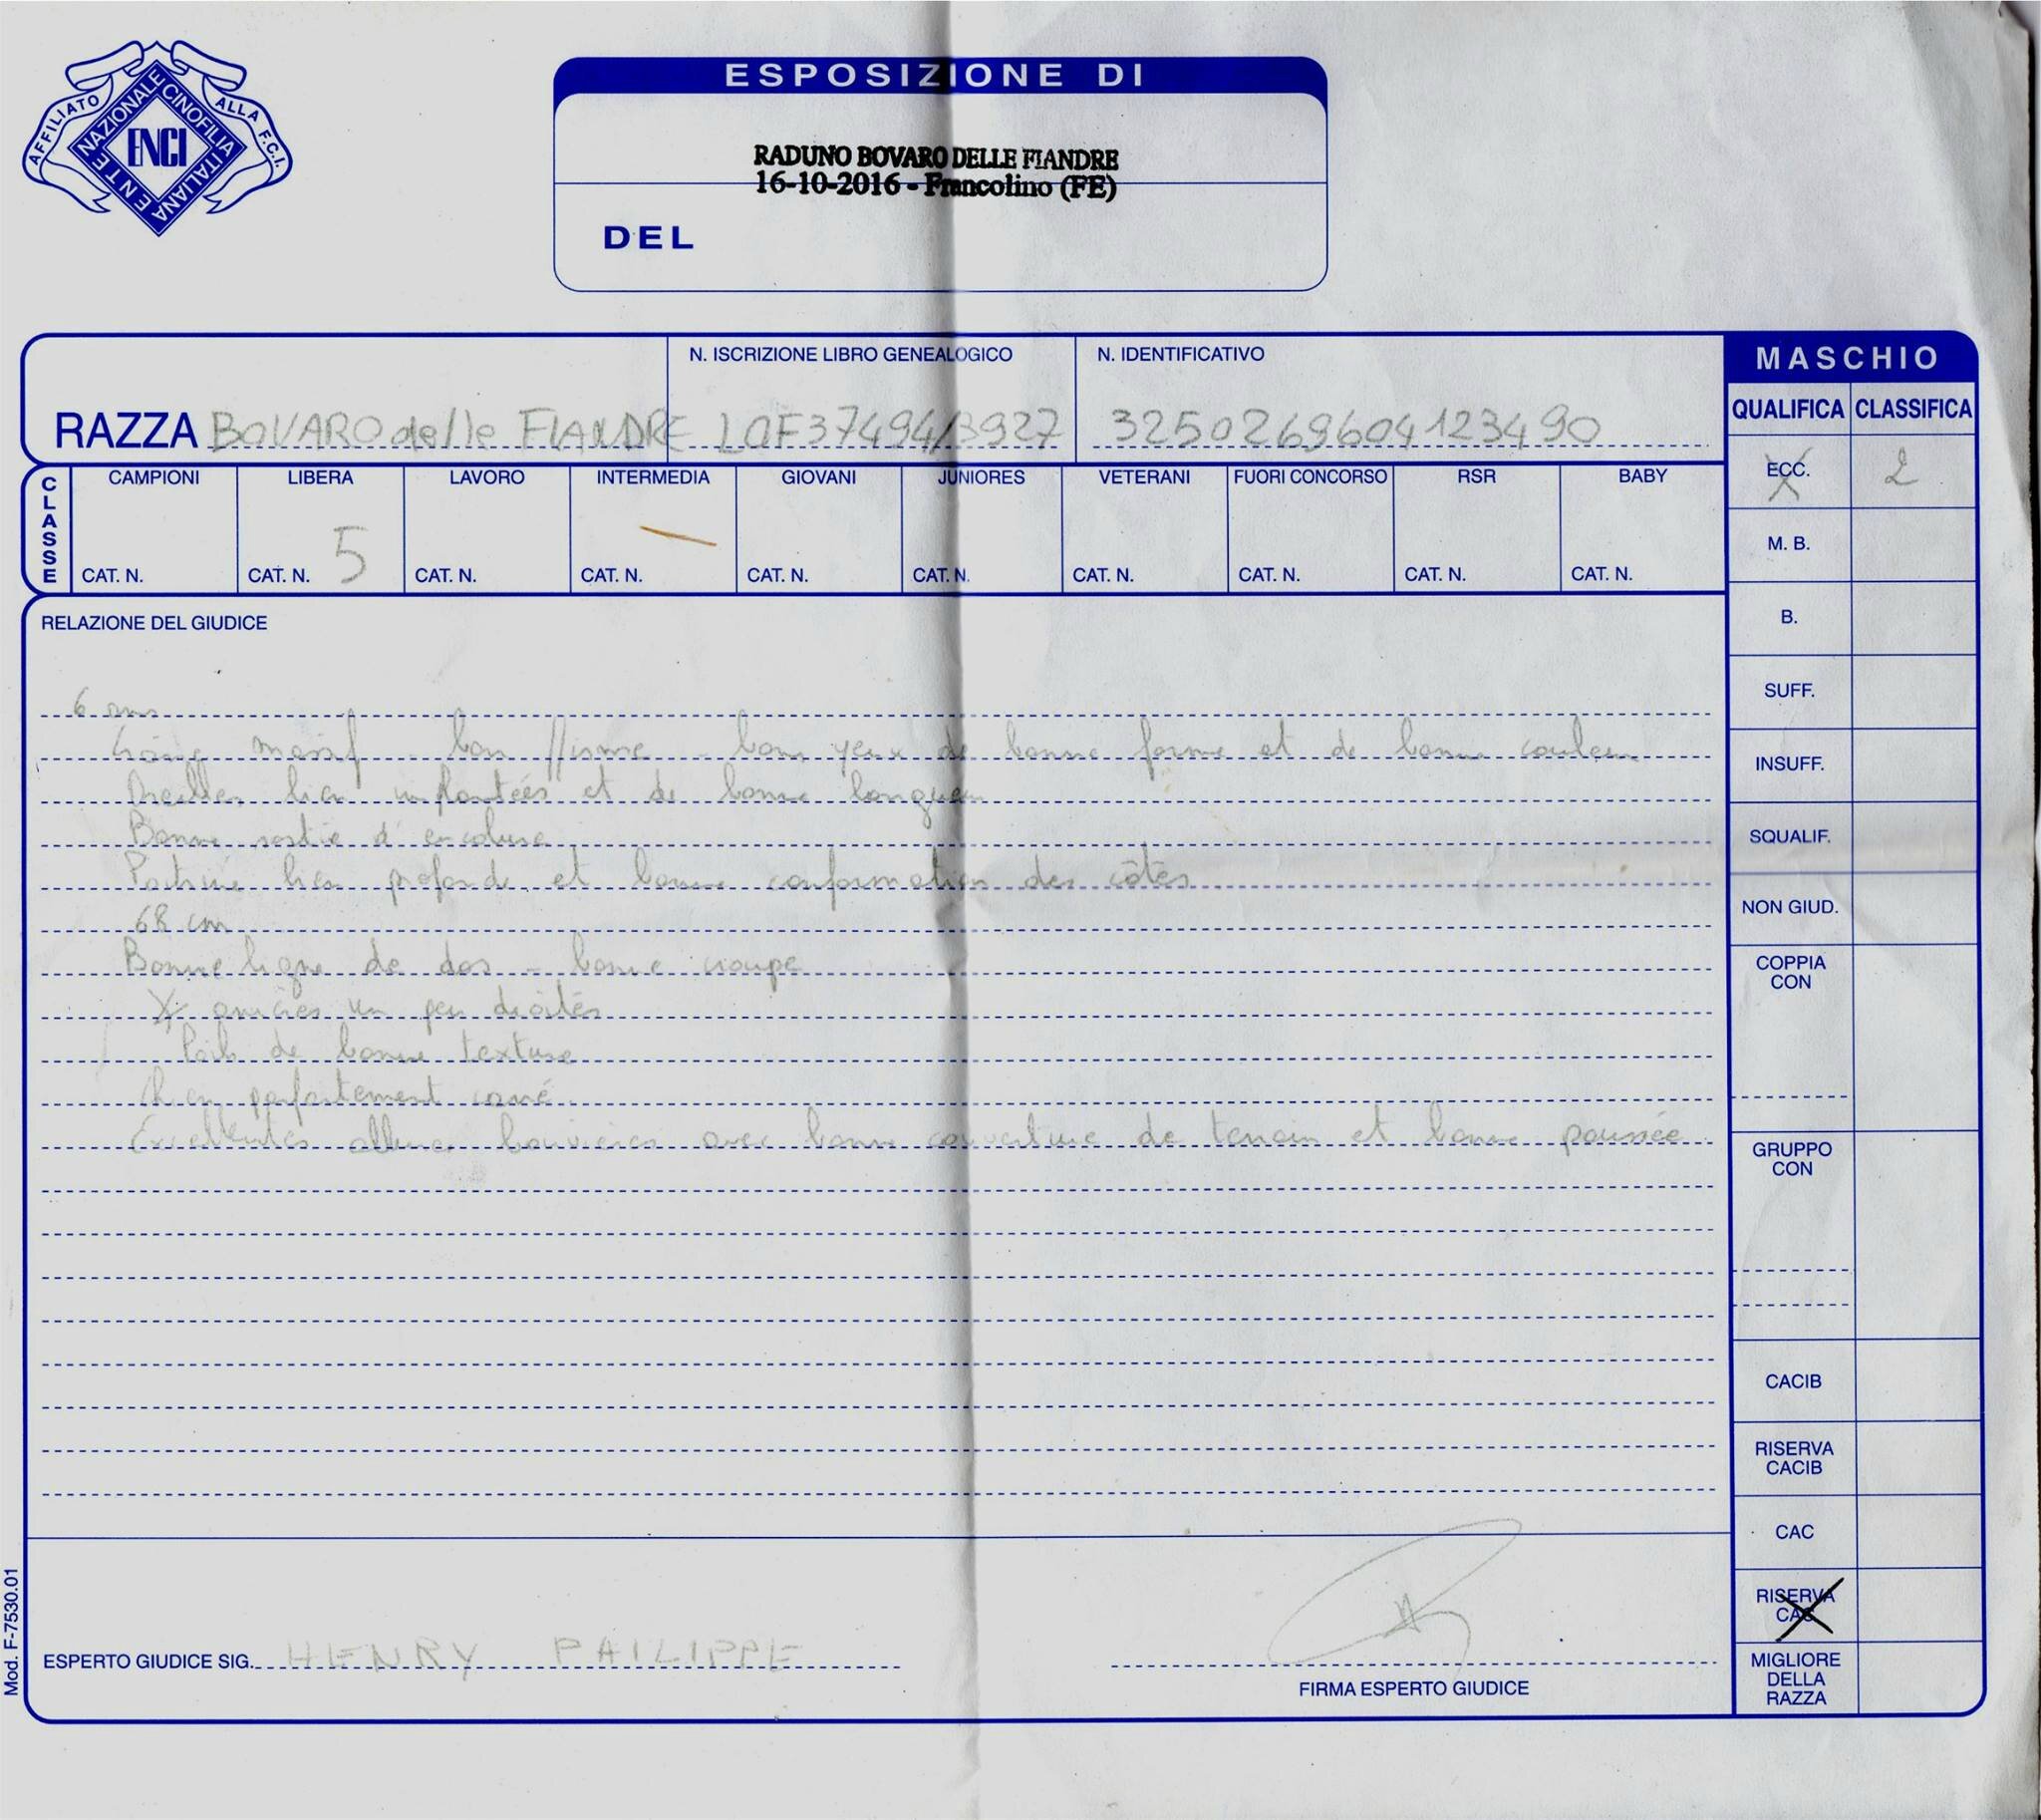 AFFILIATO ALLA F.C.I.
ENTE NAZIONALE CINOFILIA ITALIANA
ENCI
ESPOSIZIONE DI
RADUNO BOVARO DELLE FIANDRE
16-10-2016 - Francolino (FE)
DEL
MASCHIO
QUALIFICA CLASSIFICA
N. ISCRIZIONE LIBRO GENEALOGICO N. IDENTIFICATIVO
RAZZA BOVARO delle FIANDRE LOF37494/3927 3250269604123490
CLASSE
CAMPIONI LIBERA LAVORO INTERMEDIA GIOVANI JUNIORES VETERANI FUORI CONCORSO RSR BABY
5
CAT. N. CAT. N. CAT. N. CAT. N. CAT. N. CAT. N. CAT. N. CAT. N. CAT. N. CAT. N.
ECC. X 2
M. B.
B.
SUFF.
INSUFF.
SQUALIF.
NON GIUD.
COPPIA
CON
GRUPPO
CON
CACIB
RISERVA
CACIB
CAC
RISERVA
CAC X
MIGLIORE
DELLA
RAZZA
RELAZIONE DEL GIUDICE
6 ans
massif - bon - bons yeux de bonne forme et de bonne couleur
Oreilles bien implantées et de bonne longueur
Bonne sortie d'encolure
Poitrine bien profonde et bonne conformation des côtes
68 cm
Bonne ligne de dos - bonne croupe
X arrières un peu droites
Poils de bonne texture
Chien parfaitement carré
Excellentes allures bouvières avec bonne couverture de terrain et bonne poussée
ESPERTO GIUDICE SIG. HENRY PHILIPPE
FIRMA ESPERTO GIUDICE
Mod. F-7530.01